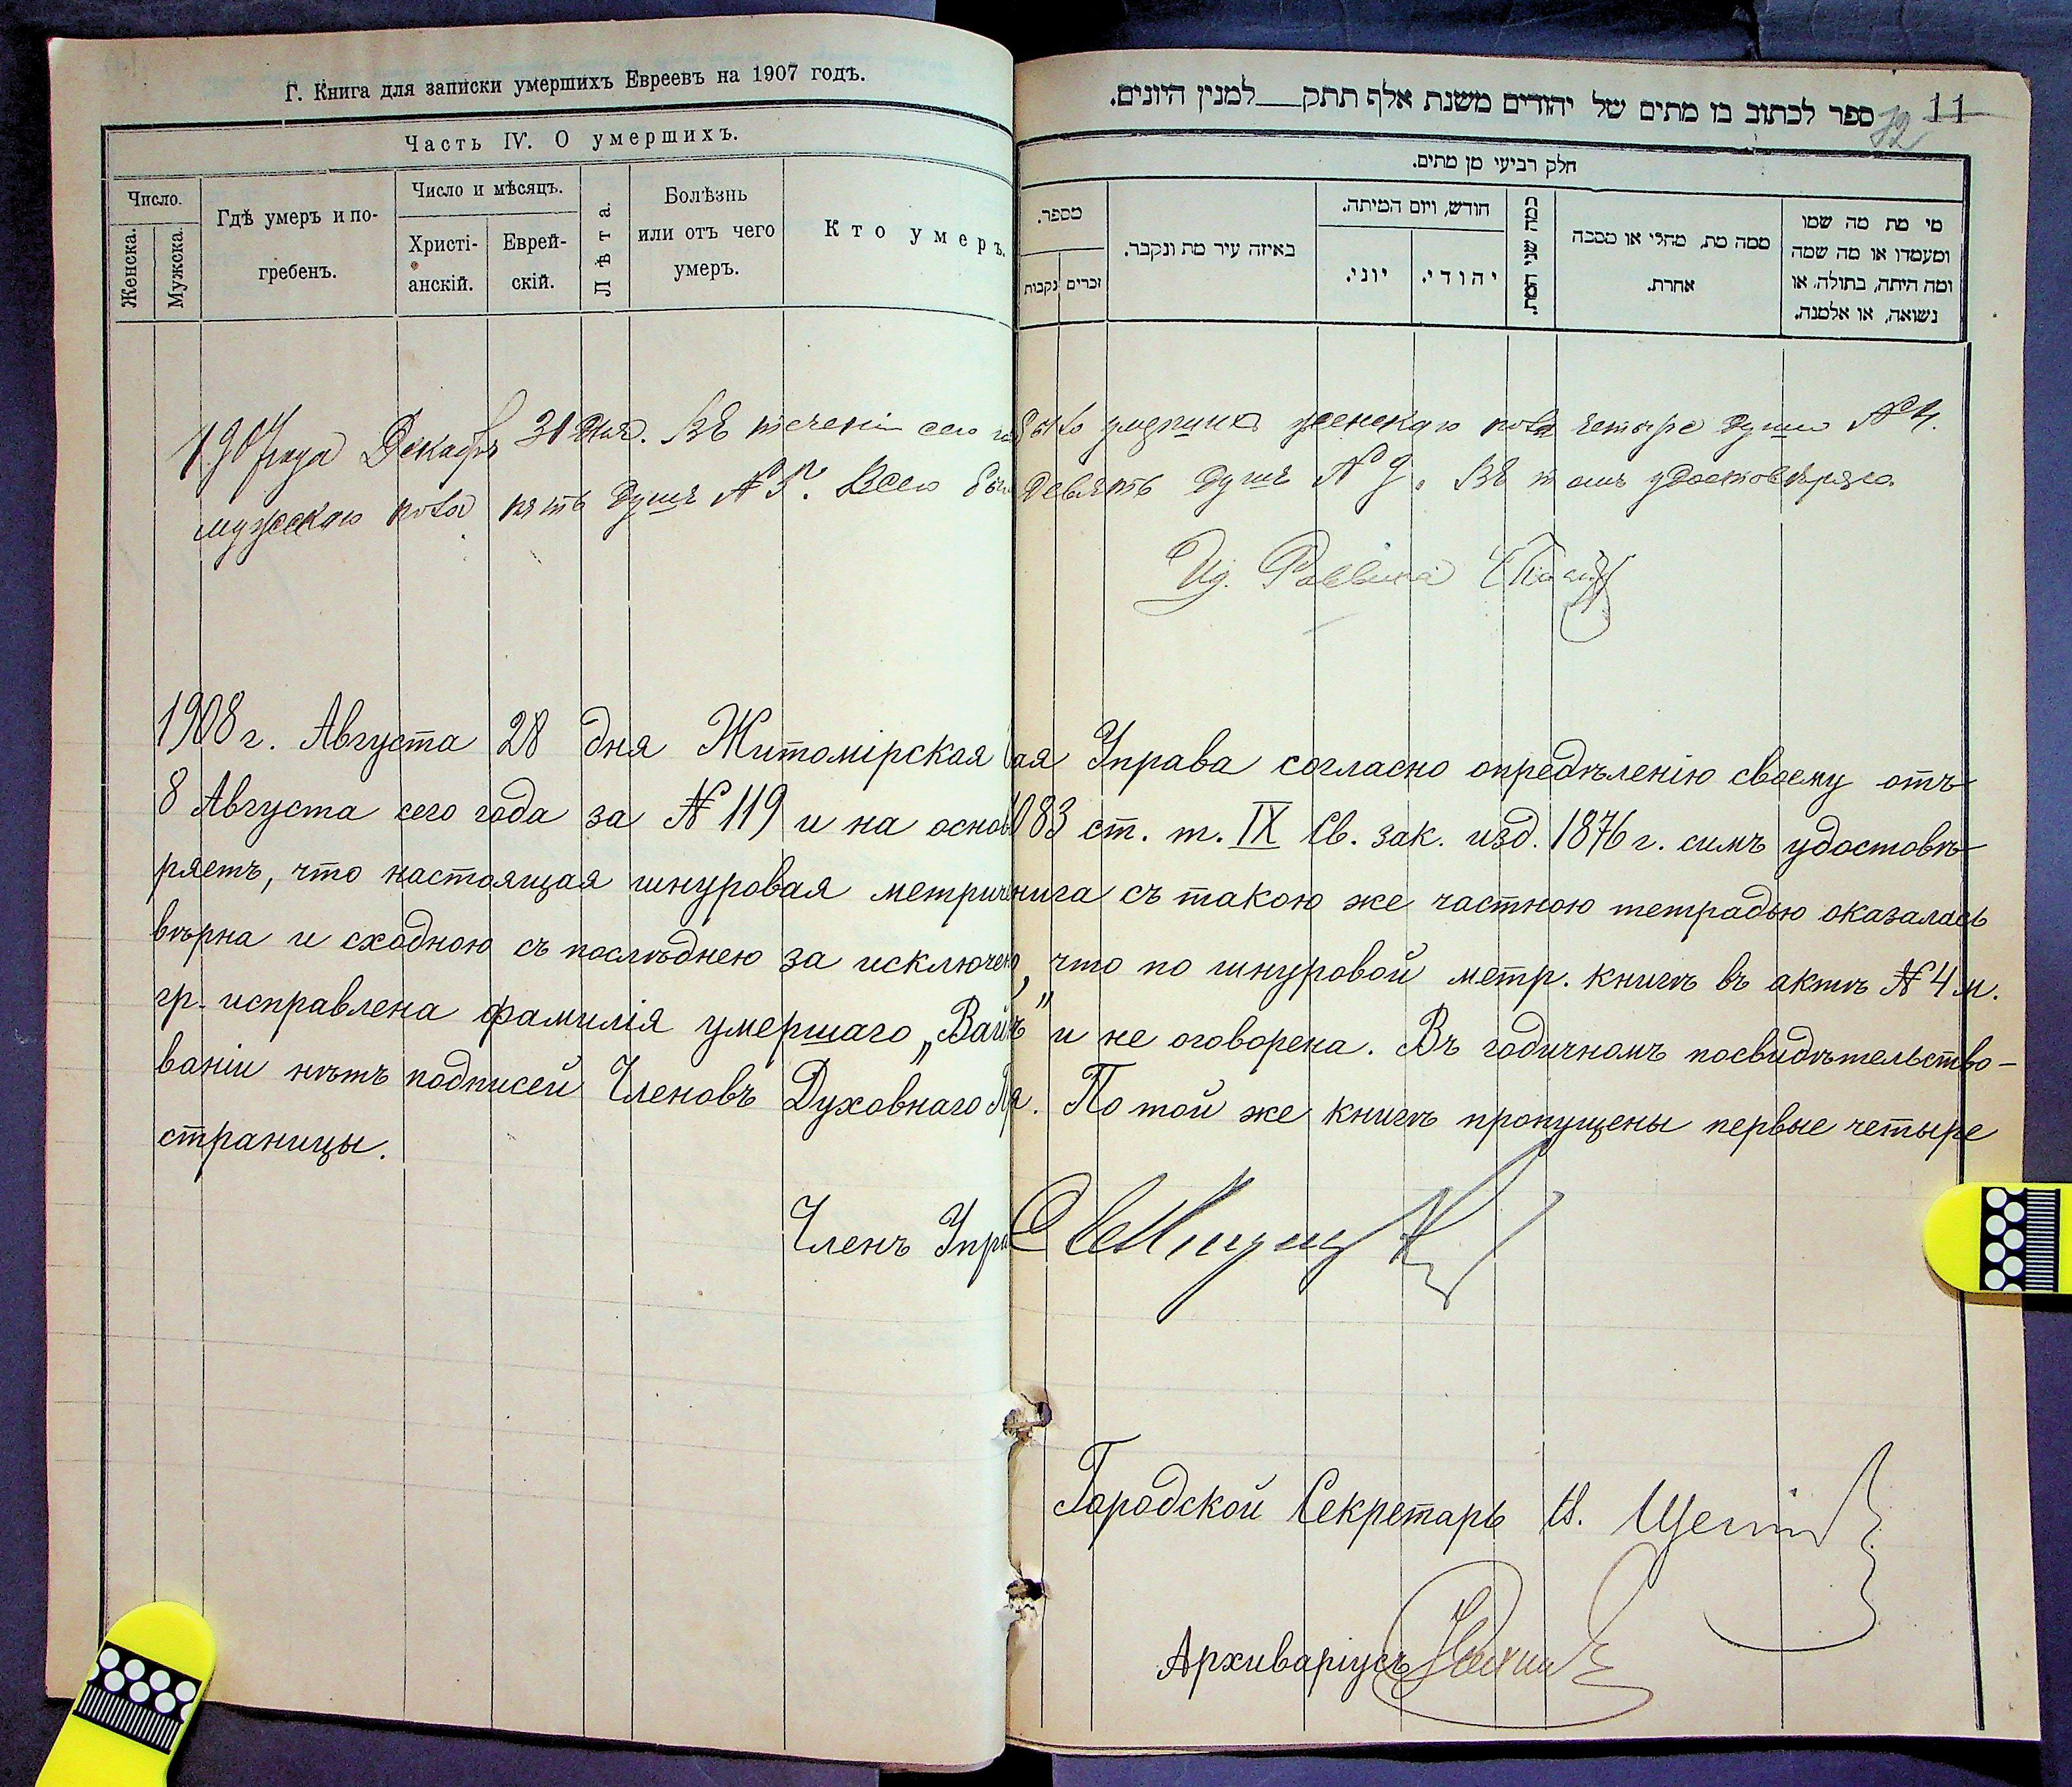 Г. Книга для записки умершихъ Евреевъ на 1907 годъ.
Часть IV. О умершихъ.
Число.
Женска.
Мужска.
Гдѣ умеръ и по-
гребенъ.
Число и мѣсяцъ.
Христі-
анскій.
Еврей-
скій.
Лѣта.
Болѣзнь
или отъ чего
умеръ.
Кто умеръ.
11
12
ספר לכתוב בו מתים של יהודים משנת אלף תתק___למנין היונים.
חלק רביעי מן מתים.
מספר.
זכרים
נקבות
באיזה עיר מת ונקבר.
חודש, ויום המיתה.
יוני.
יהודי.
כמה שני המת.
ממה מת, מחלי או מסבה
אחרת.
מי מת מה שמו
ומעמדו או מה שמה
ומה היתה, בתולה, או
נשואה, או אלמנה.
1907 года Декабря 31 дня. Въ теченіи сего было умерших женскаго пола четыре души № 4.
мужскаго пола пять душъ № 5. Всего девять душъ № 9. Въ томъ удостовѣряю.
Ид. Раввина
1908 г. Августа 28 дня Житомірская ая Управа согласно опредѣленію своему отъ
8 Августа сего года за № 119 и на основ 1083 ст. т. IX Св. зак. изд. 1876 г. симъ удостовѣ-
ряетъ, что настоящая шнуровая метрич книга съ такою же частною тетрадью оказалась
вѣрна и сходною съ послѣднею за исключен, что по шнуровой метр. книгѣ въ актѣ № 4 м.
гр. исправлена фамилія умершаго „Вай ъ" и не оговорена. Въ годичномъ посвидѣтельство-
ваніи нѣтъ подписей Членовъ Духовнаго Пр я. По той же книгѣ пропущены первые четыре
страницы.
Членъ Упра
Городской Секретарь
Архиваріусъ